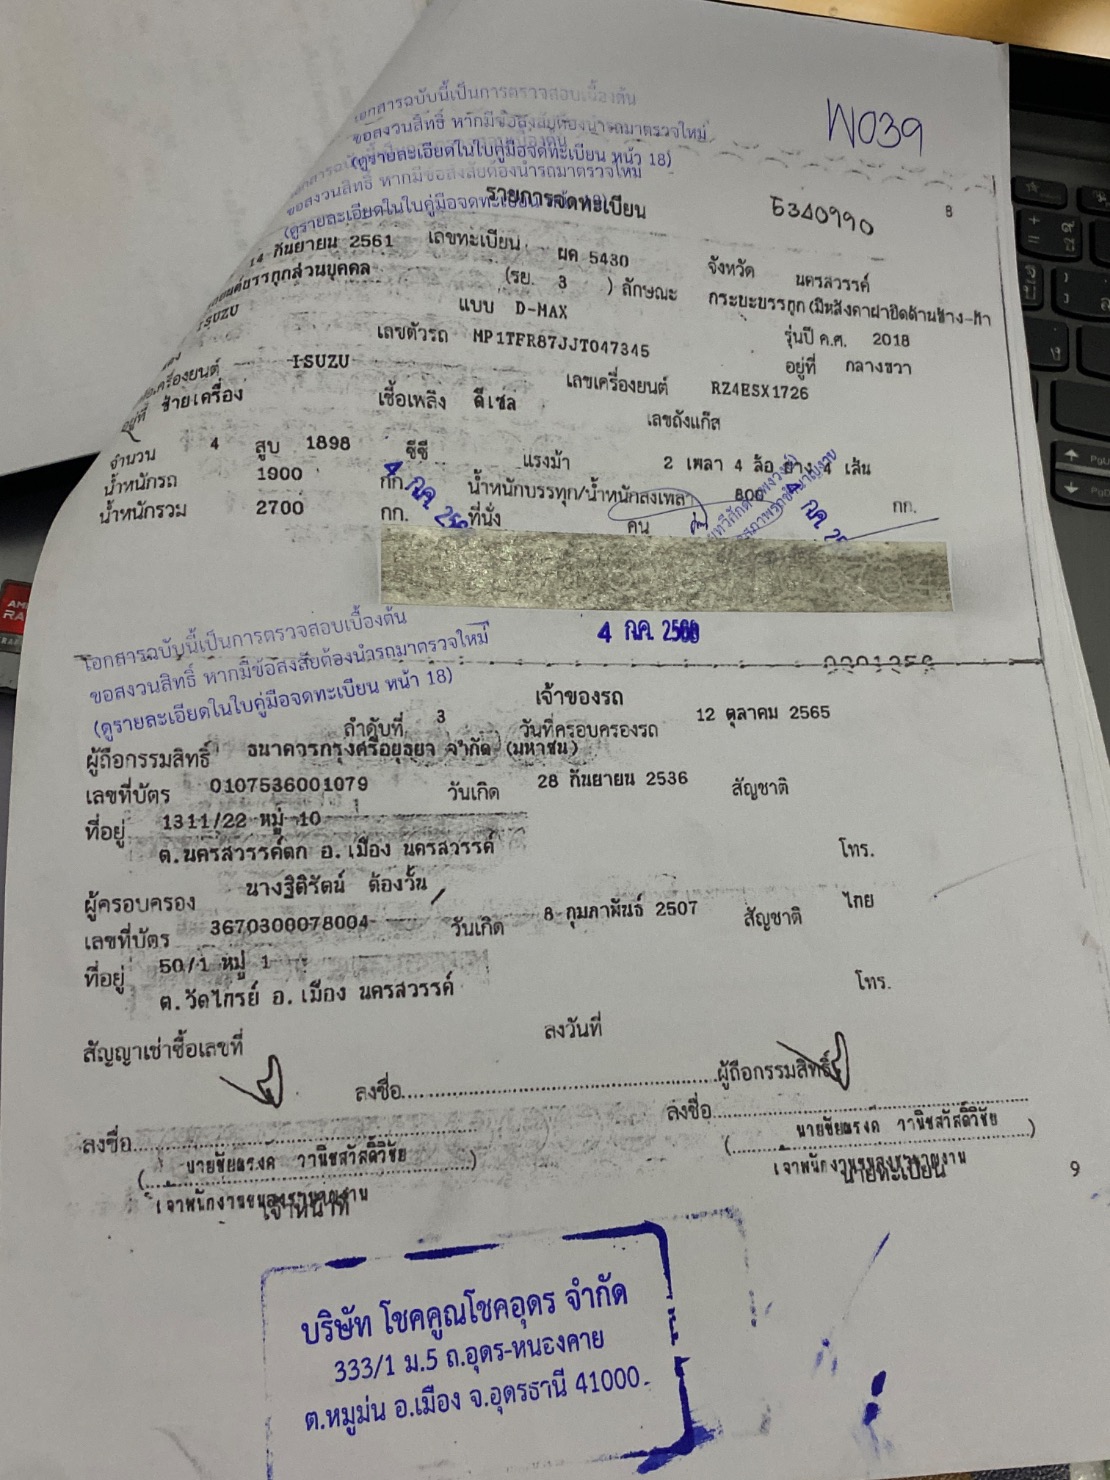 เอกสารฉบับนี้เป็นการตรวจสอบเบื้องต้น
ขอสงวนสิทธิ์ หากมีข้อสงสัยต้องนำรถมาตรวจใหม่
(ดูรายละเอียดในใบคู่มือจดทะเบียน หน้า 18)
ขอสงวนสิทธิ์ หากมีข้อสงสัยต้องนำรถมาตรวจใหม่
(ดูรายละเอียดในใบคู่มือจดทะเบียน
W039
รายการจดทะเบียน
5340990
8
14 กันยายน 2561 เลขทะเบียน ผค 5430 จังหวัด นครสวรรค์
รถยนต์บรรทุกส่วนบุคคล (รย. 3 ) ลักษณะ กระบะบรรทุก(มีหลังคาฝาปิดด้านข้าง-ท้า
ISUZU แบบ D-MAX รุ่นปี ค.ศ. 2018
เลขตัวรถ MP1TFR87JJT047345 อยู่ที่ กลางขวา
ISUZU เลขเครื่องยนต์ RZ4ESX1726
อยู่ที่ ซ้ายเครื่อง เชื้อเพลิง ดีเซล เลขถังแก๊ส
จำนวน 4 สูบ 1898 ซีซี แรงม้า 2 เพลา 4 ล้อ ยาง 4 เส้น
น้ำหนักรถ 1900 กก. น้ำหนักบรรทุก/น้ำหนักลงเพลา 800 กก.
น้ำหนักรวม 2700 กก. ที่นั่ง คน
4 กค. 25
4 กค. 25
4 กค. 2568
เอกสารฉบับนี้เป็นการตรวจสอบเบื้องต้น
ขอสงวนสิทธิ์ หากมีข้อสงสัยต้องนำรถมาตรวจใหม่
(ดูรายละเอียดในใบคู่มือจดทะเบียน หน้า 18)
เจ้าของรถ
ลำดับที่ 3 วันที่ครอบครองรถ 12 ตุลาคม 2565
ผู้ถือกรรมสิทธิ์ ธนาคารกรุงศรีอยุธยา จำกัด (มหาชน)
เลขที่บัตร 0107536001079 วันเกิด 28 กันยายน 2536 สัญชาติ
ที่อยู่ 1311/22 หมู่ 10
ต.นครสวรรค์ตก อ.เมือง นครสวรรค์ โทร.
ผู้ครอบครอง นางฐิติรัตน์ ด้องวั้น
เลขที่บัตร 3670300078004 วันเกิด 8 กุมภาพันธ์ 2507 สัญชาติ ไทย
ที่อยู่ 50/1 หมู่ 1
ต.วัดไทรย์ อ.เมือง นครสวรรค์ โทร.
สัญญาเช่าซื้อเลขที่ ลงวันที่
ลงชื่อ ผู้ถือกรรมสิทธิ์
ลงชื่อ ลงชื่อ
( นายชัยณรงค์ วานิชสวัสดิ์วิชัย ) ( นายชัยณรงค์ วานิชสวัสดิ์วิชัย )
เจ้าพนักงานขนส่งชำนาญงาน เจ้าพนักงานขนส่งชำนาญงาน
เจ้าหน้าที่ นายทะเบียน
9
บริษัท โชคคูณโชคอุดร จำกัด
333/1 ม.5 ถ.อุดร-หนองคาย
ต.หมูม่น อ.เมือง จ.อุดรธานี 41000